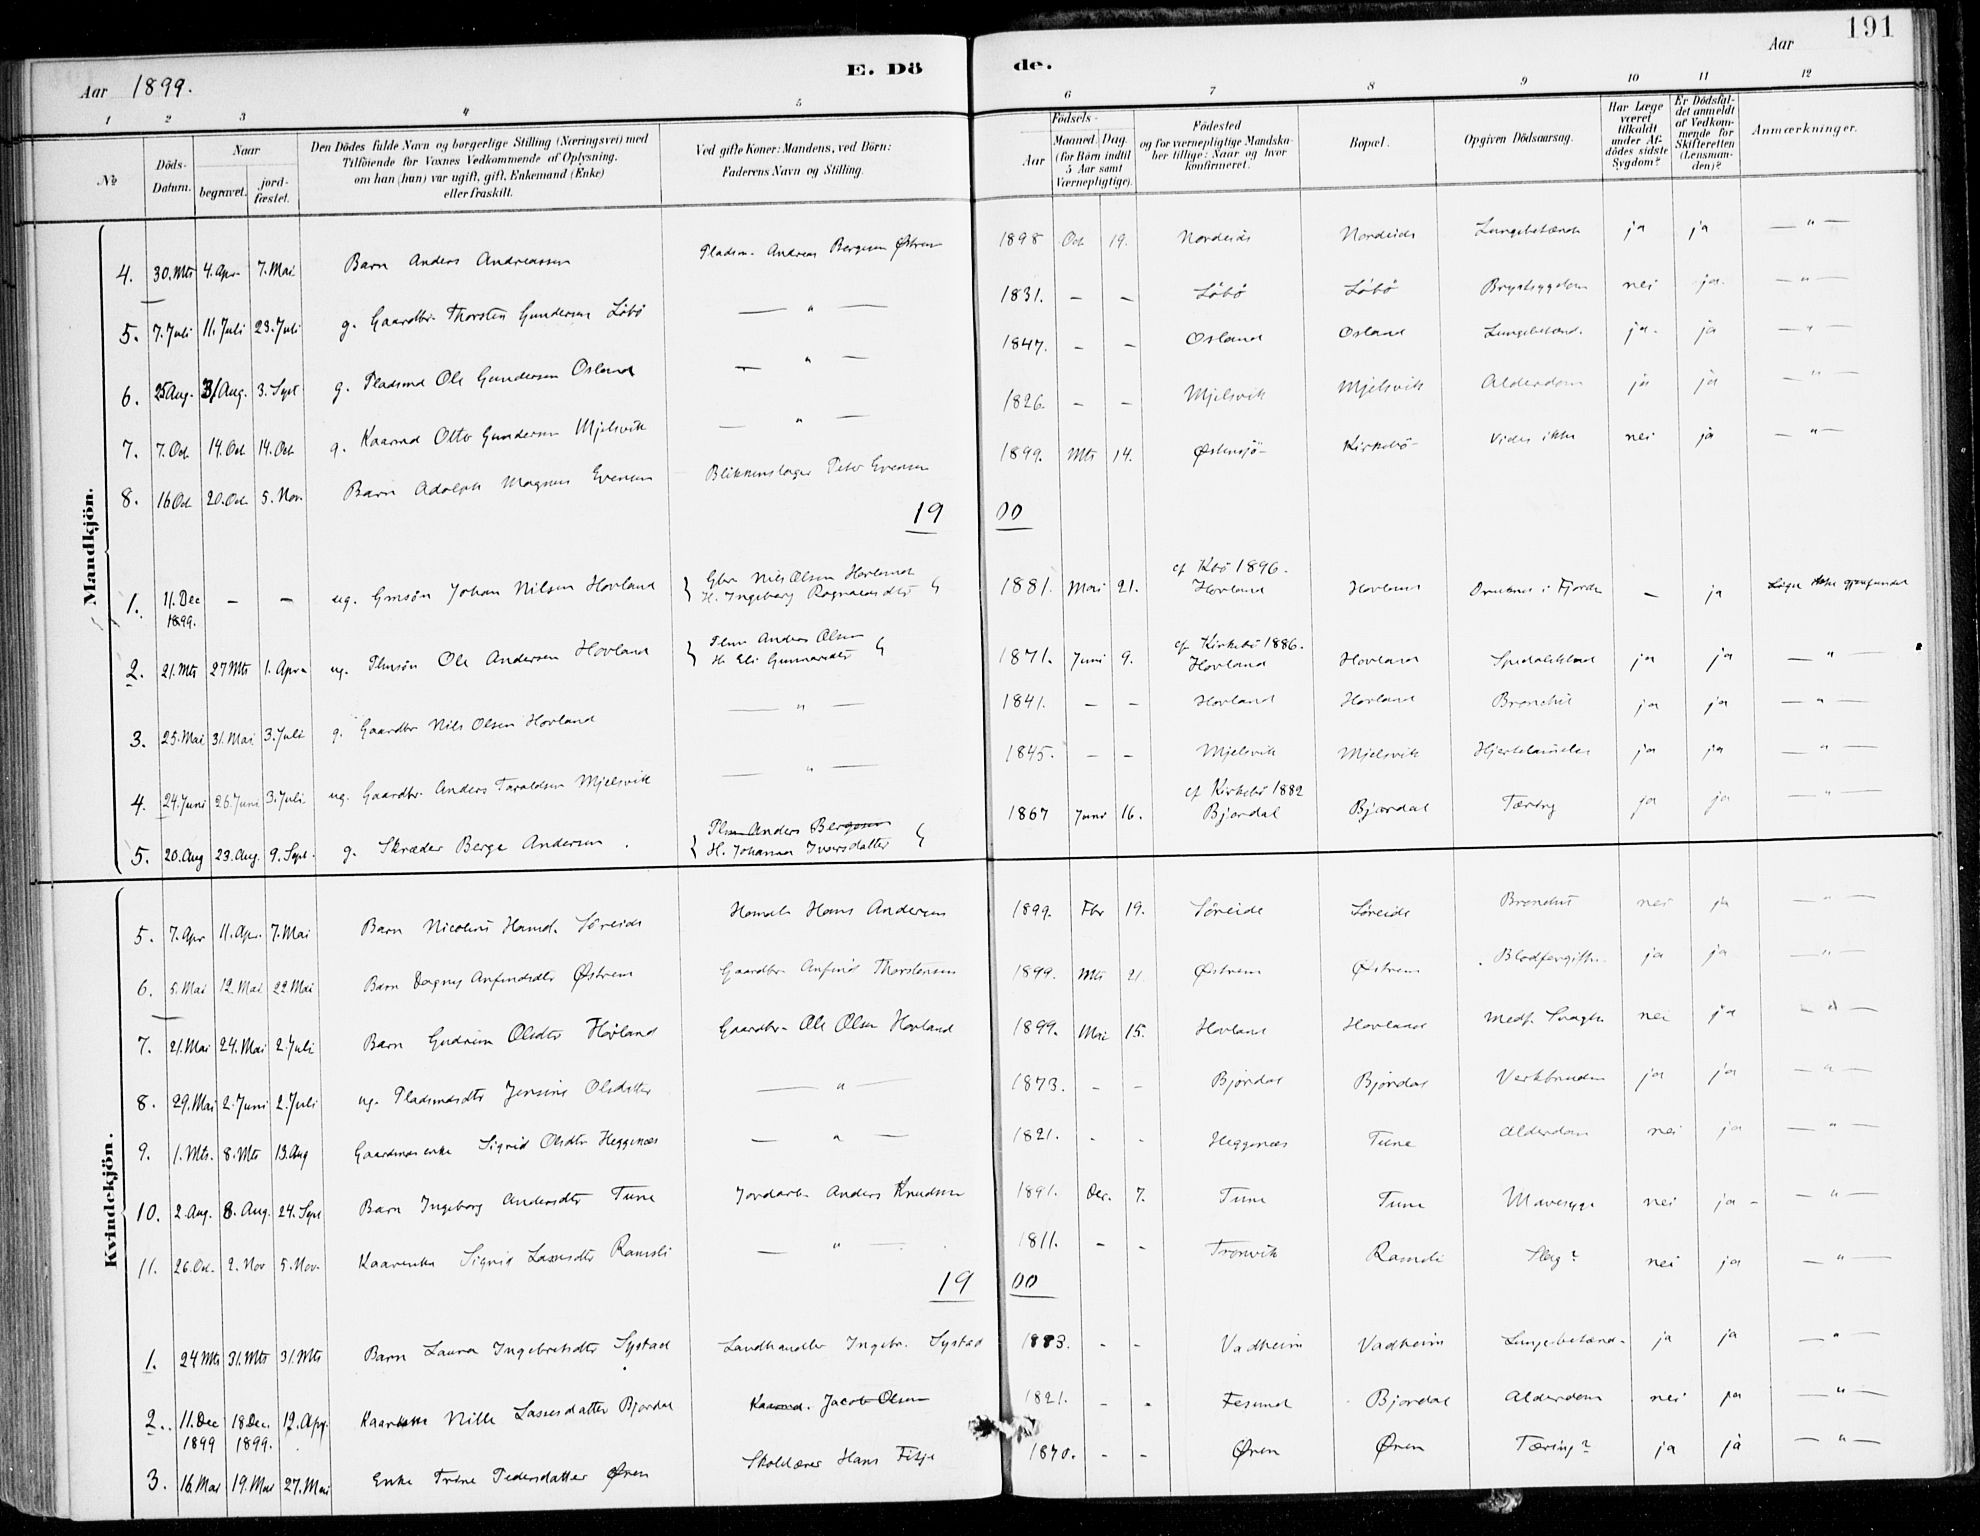 191
Aar 1899.
E. Dö de.
Aar
1 2 3 4 5 6 7 8 9 10 11 12
№
Döds-Datum.
Naar
begravet.
jord-fæstet.
Den Dödes fulde Navn og borgerlige Stilling (Næringsvei) med
Tilföiende for Voxnes Vedkommende af Oplysning,
om han (hun) var ugift, gift, Enkemand (Enke)
eller fraskilt.
Ved gifte Koner: Mandens, ved Börn:
Faderens Navn og Stilling.
Födsels-
Aar
Maaned. Dag.
(for Börn indtil
5 Aar samt
Værnepligtige).
Födested
og for værnepligtige Mandska-
ber tillige: Naar og hvor
konfirmeret.
Bopæl.
Opgiven Dödsaarsag.
Har Læge
været
tilkaldt
under Af-
dödes sidste
Sygdom?
Er Dödsfal-
det anmeldt
af Vedkom-
mende for
Skifteretten
(Lensman-
den)?
Anmærkninger.
Mandkjön.
4. 30. Mts 4. Apr 7. Mai Barn Anders Andreassen Pladsm. Andreas Bergesen Østrem 1898 Oct 19. Nordeide Nordeide Lungebetænd ja ja — " —
5. 7. Juli 11. Juli 23. Juli g. Gaardbr. Thorsten Gundersen Löbö — " — 1831. — — Löbö Löbö Brystsygdom nei ja — " —
6. 25 Aug. 31 Aug. 3. Sept g. Pladsmd Ole Gundersen Osland — " — 1847. — — Osland Osland Lungebetænd. ja ja — " —
7. 7. Oct 14. Oct 14. Oct g. Kaarmd Otto Gundersen Mjelsvik — " — 1826. — — Mjelsvik Mjelsvik Alderdom ja ja — " —
8. 16 Oct 20. Oct. 5. Nov. Barn Adolph Magnus Evensen Blikkenslager Peter Evensen 1899. Mts 14. Østensjö Kirkebö Vides ikke nei ja — " —
19 00
1. 11. Dec 1899. — — ug. Gmsøn Johan Nilsen Hovland Gbr. Nils Olsen Hovland H. Ingeborg Ragnaldsdtr 1881. Mai 21. cf Kbö 1896. Hovland Hovland Druknet i Fjorden — ja Liget ikke gjenfundet
2. 21. Mts 27 Mts 1. Apr ug. Plmsön Ole Andersen Hovland Plm Anders Olsen H. Eli Gunnarsdtr 1871. Juni 9. cf Kirkebö 1886. Hovland Hovland Spedalskhed ja ja — " —
3. 25. Mai 31. Mai 3. Juli g. Gaardbr Nils Olsen Hovland — " — 1841. — — Hovland Hovland Bronchit ja ja — " —
4. 24. Juni 26. Juni 3. Juli ug. Gaardbr. Anders Taraldsen Mjelsvik — " — 1845. — — Mjelsvik Mjelsvik Hjertelammelse ja ja — " —
5. 20. Aug 23. Aug. 9. Sept. g. Skræder Berge Andersen Plm Anders Bergesen H. Johanna Iversdatter 1867 Juni 16. cf Kirkebö 1882 Bjordal Bjordal Tæring ja ja — " —
Kvindekjön.
5. 7. Apr 11. Apr. 7. Mai Barn Nicoline Hansd. Söreide Hans Andersen 1899. Fbr 19. Söreide Söreide Bronchit nei ja — " —
6. 5. Mai 12. Mai 22 Mai Barn Dagny Anfindsdtr Østrem Gaardbr. Anfind Thorstensen 1899. Mts 21. Østrem Østrem Blodforgiftn. ja ja — " —
7. 21. Mai 24. Mai 2. Juli Barn Gudrun Olsdtr Hovland Gaardbr. Ole Olsen Hovland 1899. Mai 15. Hovland Hovland Medf. Svagh. nei ja — " —
8. 29. Mai 2. Juni 2. Juli ug. Pladsmdsdtr Jensine Olsdatter — " — 1873. - - Björdal Björdal Verkbruden ja ja — " —
9. 1. Mts. 8. Mts 13. Aug Gaardmdsenke Sigrid Olsdtr Heggenæs — " — 1821. - - Heggenæs Tune Alderdom nei ja — " —
10. 2. Aug. 8. Aug. 24. Sept Barn Ingeborg Andersdtr Tune Jordarb. Anders Knudsen 1891. Dec. 7. Tune Tune Mavesyge nei ja — " —
11. 26. Oct. 2. Nov 5. Nov. Kaarenke Sigrid Lassesdtr Ramsli — " — 1811. - - Tronvik Ramsli Slag? nei ja — " —
19 00
1. 24 Mts 31. Mts 31. Mts Barn Laura Ingebretsdtr Systad Landhandler Ingebr. Systad 1883. - - Vadheim Vadheim Lungebetænd. ja ja — " —
2. 11. Dec 1899 18 Dec. 1899. 17. Apr. Kaarenke Nille Lassesdatter Bjordal Kaarmd. Jacob Olsen 1821. - - Bjordal Alderdom nei ja — " —
3. 16. Mai 19. Mai 27. Mai Enke Trine Pedersdatter Øren Skolelærer Hans Fitje 1870. - - Øren Øren Tæring? ja ja — " —